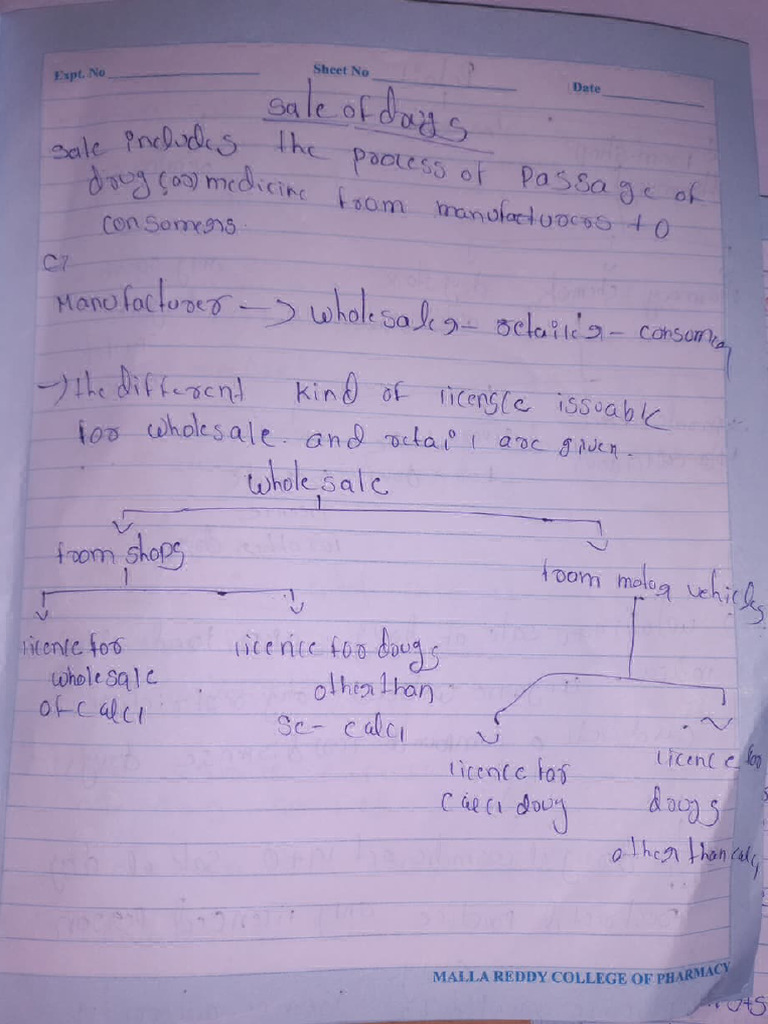 Expt. No
Sheet No
Date
Sale of drugs
Sale includes the process of passage of
drug (or) medicine from manufacturers to
consumers.
Manufacturer -> wholesaler - retailer - consumer
-> the different kind of license issuable
for wholesale. and retail are given.
wholesale
from shops
from motor vehicles
licence for
wholesale
of C and C1
licence for drugs
other than
Sc- C and C1
licence for
C and C1 drug
licence for
drugs
other than C and C1
MALLA REDDY COLLEGE OF PHARMACY